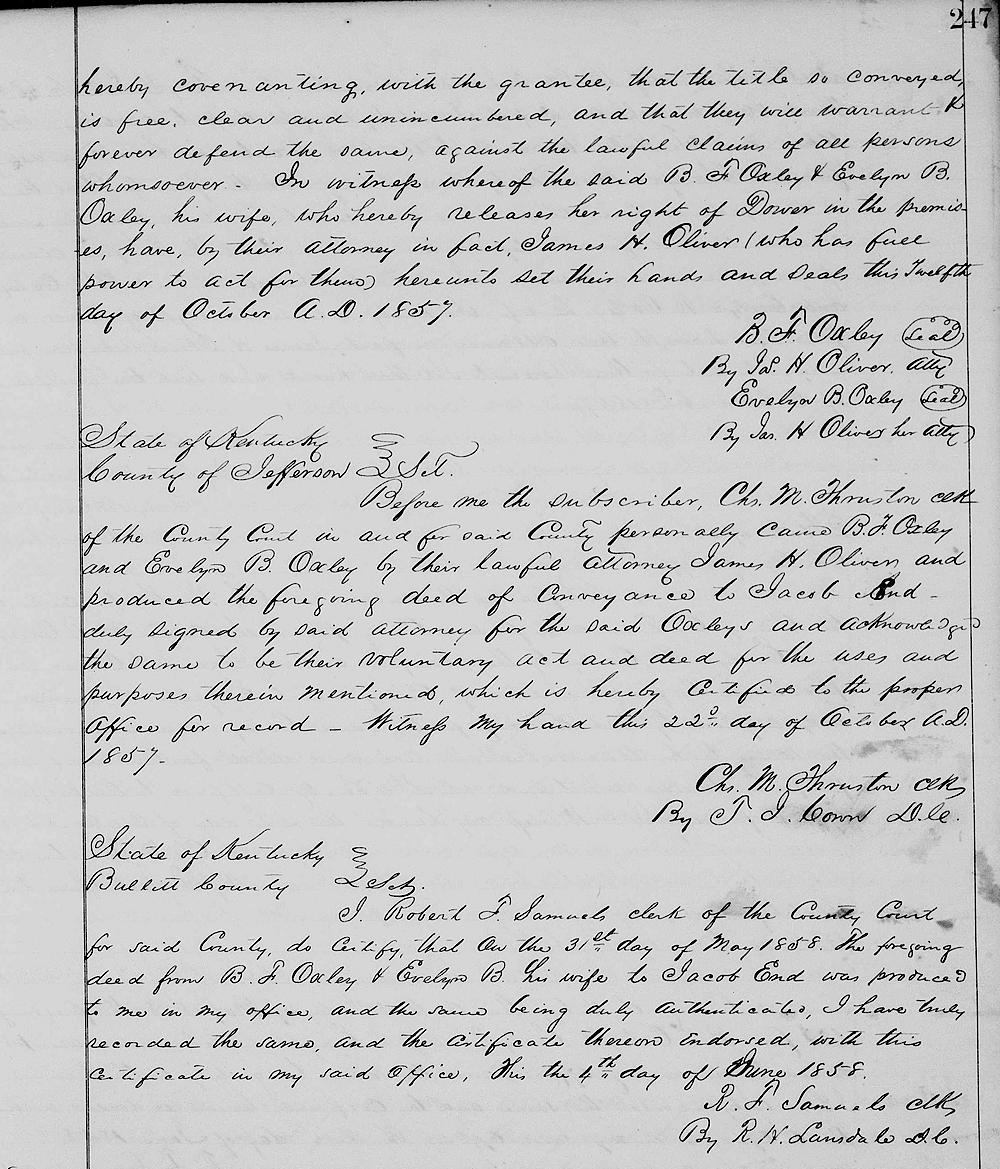 247
hereby covenanting, with the grantee, that the title so conveyed,
is free, clear and unincumbered, and that they will warrant &
forever defend the same, against the lawful claims of all persons
whomsoever - In witness whereof the said B. F Oxley & Evelyn B.
Oxley, his wife, who hereby releases her right of Dower in the premis-
-es, have, by their attorney in fact, James H. Oliver (who has full
power to act for them) hereunto set their hands and seals this Twelfth
day of October A.D. 1857.
B. F. Oxley (Seal)
By Jas. H Oliver, atty
Evelyn B. Oxley (Seal)
By Jas. H Oliver her atty
State of Kentucky
County of Jefferson } Sct.
Before me the subscriber, Chs. M. Thruston clk
of the County Court in and for said County personally came B. F. Oxley
and Evelyn B. Oxley by their lawful attorney James H. Oliver and
produced the foregoing deed of conveyance to Jacob End -
duly signed by said attorney for the said Oxleys and acknowledged
the same to be their voluntary act and deed for the uses and
purposes therein mentioned, which is hereby certified to the proper
office for record - Witness my hand this 22d day of October A.D.
1857-
Chs. M. Thruston clk
By T. J. D.C.
State of Kentucky
Bullitt County } Sct.
I, Robert F. Samuels clerk of the County Court
for said County, do certify, that on the 31st day of May 1858. The foregoing
deed from B. F. Oxley & Evelyn B. his wife to Jacob End was produced
to me in my office, and the same being duly authenticated, I have truly
recorded the same, and the certificate thereon endorsed, with this
certificate in my said office, This the 4th day of June 1858.
R. F. Samuels clk
By R. N. Lansdale D.C.